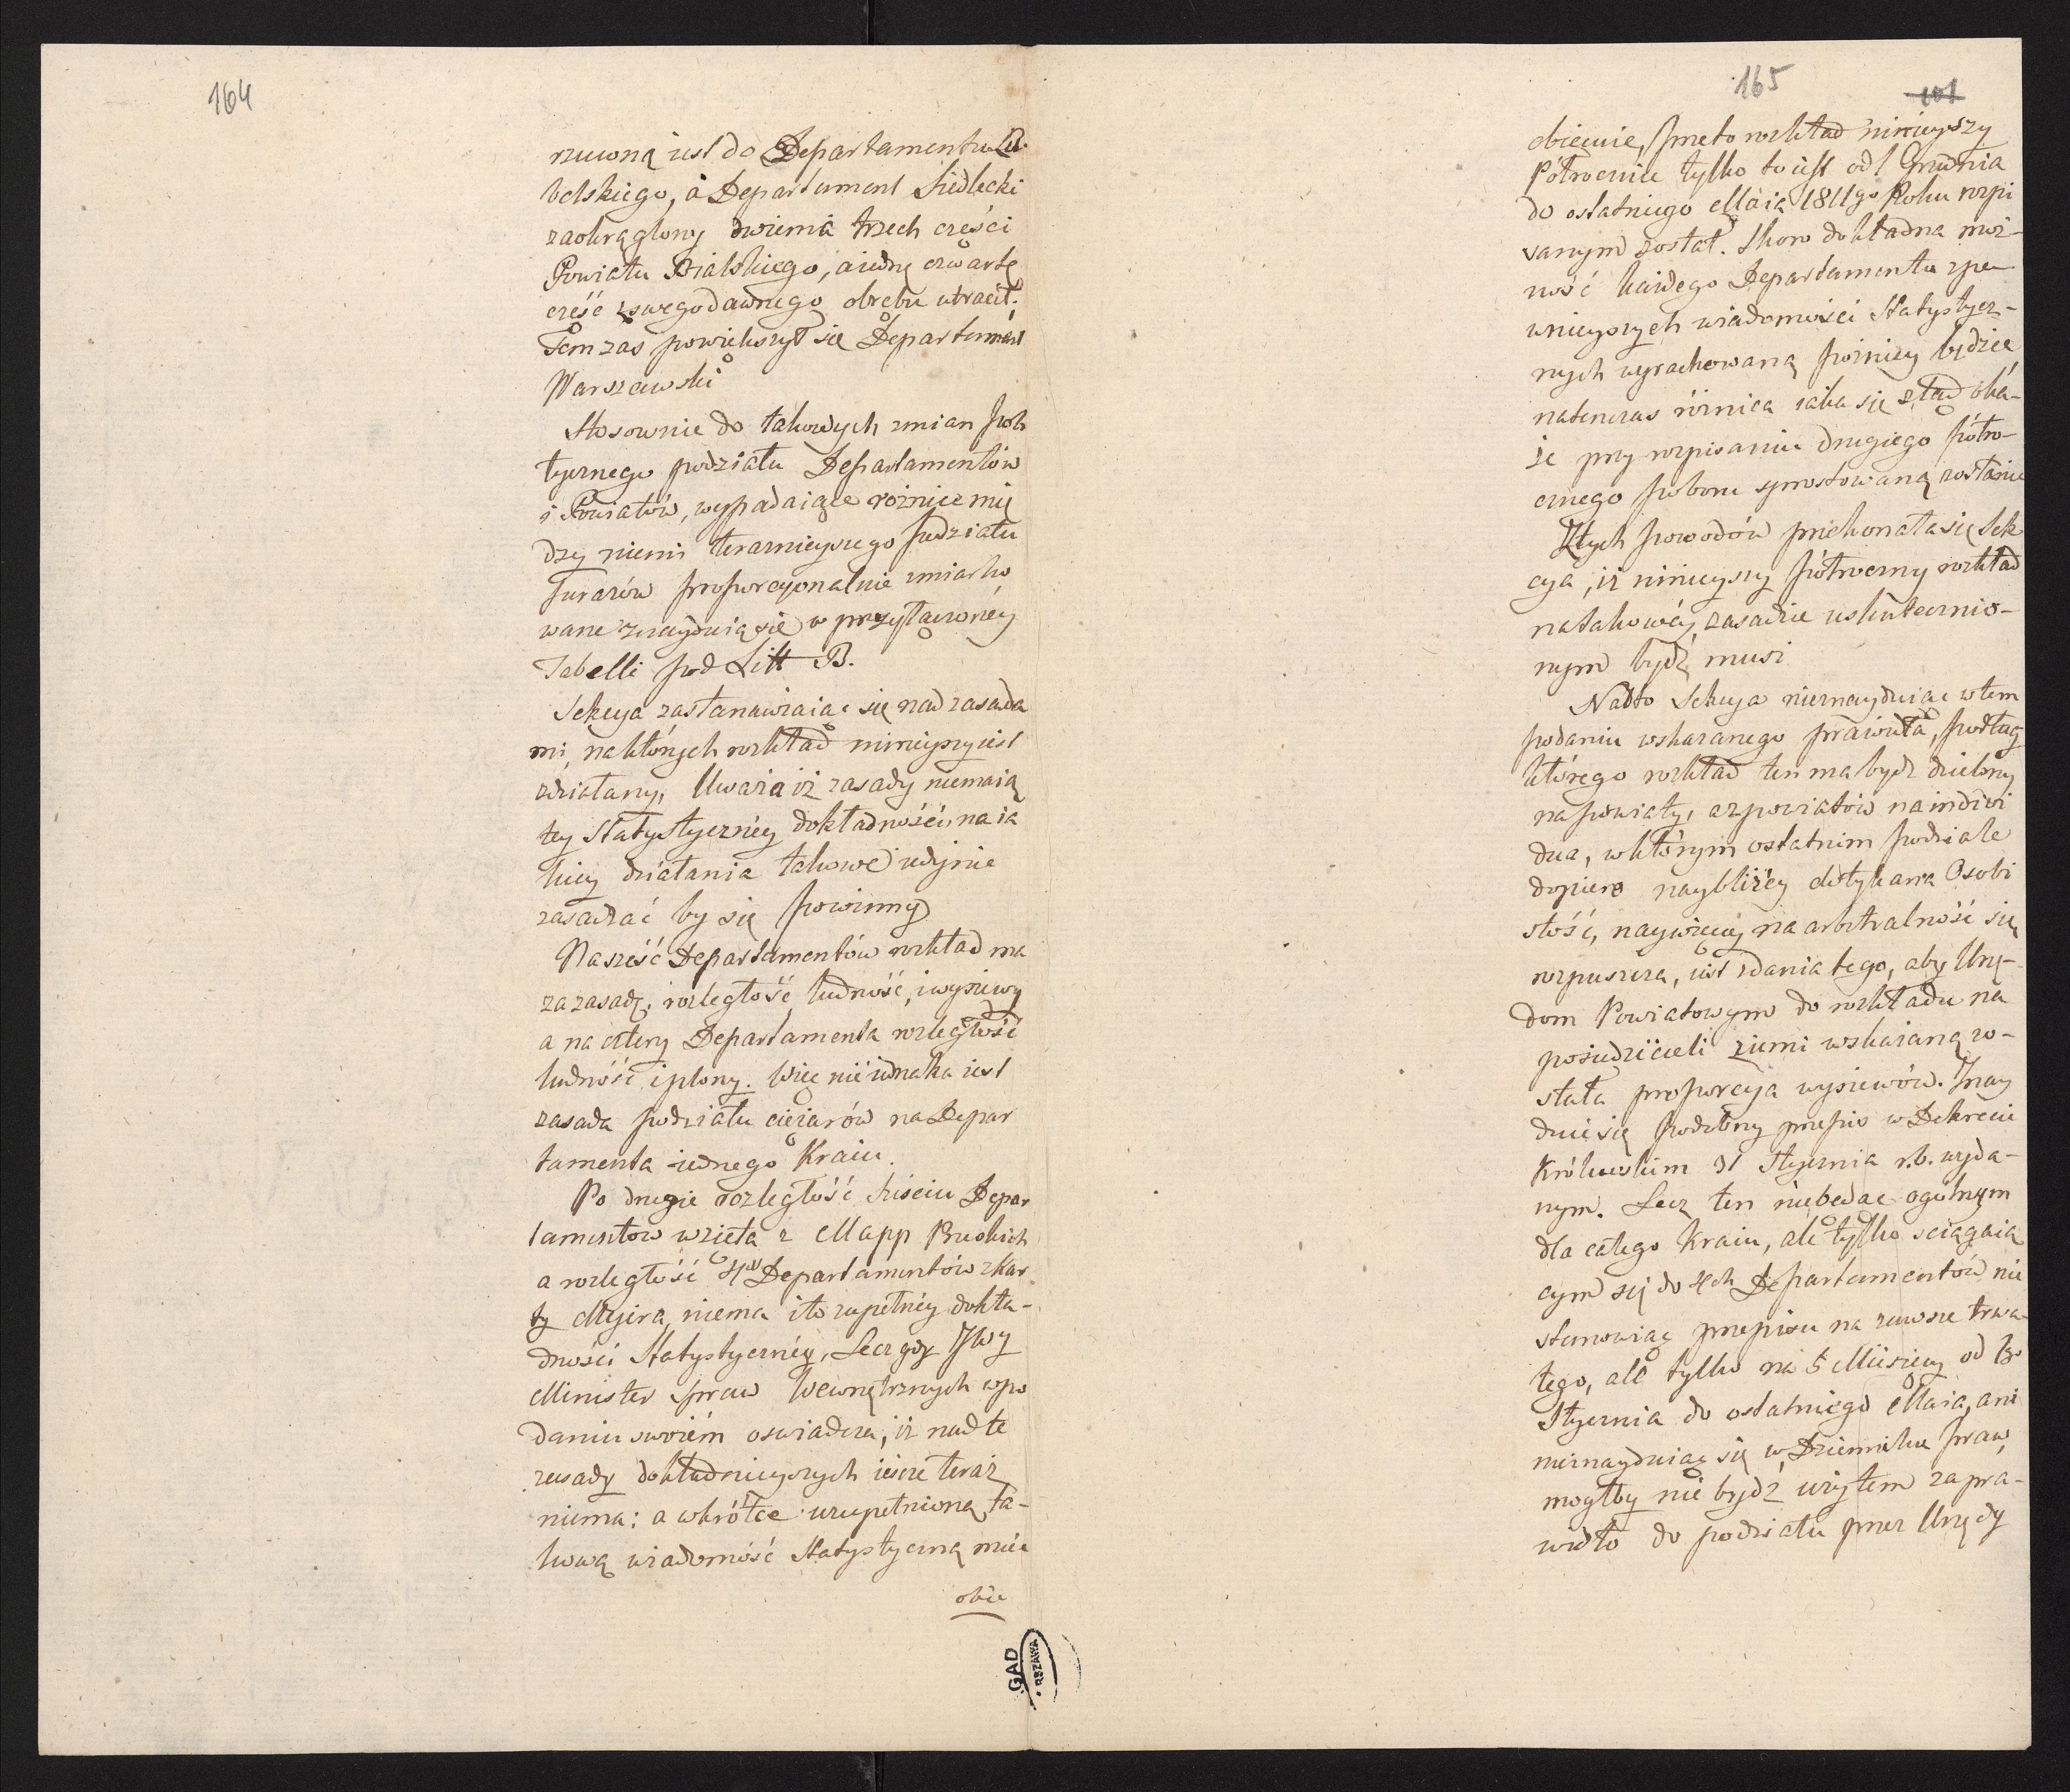 164
rzuconą iest do Departamentu Lu
belskiego, a Departament Siedlecki
zaokrąglony dwiema trzech części
Powiatu Bialskiego, a iednę czwartę
część z swego dawnego obrębu utracił.
Tem zas powiększył się Departament
Warszawski
Stosownie do takowych zmian poli
tycznego podziału Departamentów
i Powiatów, wypadaiące różnice mię
dzy niemi terazniejszego podziału
furażów proporcyonalnie zmiarko
wane znayduią się w przyłączonéy
Tabelli pod Litt B.
Sekcya zastanawiaiąc się nad zasada
mi, na których rozkład ninieyszy iest
zdziałany, Uważa iż zasady niemaią
tey Statystycznéy dokładności, na ia
kiey działania takowe iedynie
zasadzać by się powinny
Na sześć Departamentów rozkład ma
za zasadę, rozległość, ludność, i wysiewy
a na cztery Departamenta rozległość
ludność i plony. Więc nie iednaka iest
zasada podziału ciężarów na Depar
tamenta iednego Kraiu.
Po drugie rozległość sześciu Depar
tamentow wzięta z Mapp Pruskich
a rozległość 4ch Departamentów z Kar
ty Majera, niema i to zupełnéy dokła-
dności Statystycznéy, Lecz gdy JWy
Minister Spraw Wewnętrznych w po
daniu swoiém oswiadcza, iż nad te
zasady dokładnieyszych ieszcze teraz
niema: a wkrótce uzupełnioną ta-
kową wiadomość Statystyczną mieć
obie
GAD
RSZAWA
165
101
obiecuie, przeto rozkład ninieyszy
Półrocznie tylko to iest od 1 Grudnia
do ostatniego Maia 1811go Roku rozpi
sanym został. Skoro dokładna moż-
ność każdego Departamentu z pe
wnieyszych wiadomości Statystycz-
nych wyrachowaną później będzie,
natenczas różnica iaka się ztąd oka-
że przy rozpisaniu drugiego półro-
cznego poboru sprostowaną zostanie
Z tych powodów przekonała się Sek
cya, iż ninieyszy półroczny rozkład
na takowéy zasadzie uskutecznio-
nym bydź musi
Nadto Sekcya nieznayduiąc w tem
podaniu wskazanego prawidła, podług
którego rozkład ten ma bydź dzielony
na powiaty, a z powiatów na indiwi
dua, w którym ostatnim podziale
dopiero naybliżéy dotykana Osobi
stość, naywięcéy na arbitralność się
rozpuszcza, iest zdania tego, aby Urzę-
dom Powiatowym do rozkładu na
posiedzicieli ziemi wskazaną zo-
stała proporcya wysiewów. Znay
duie się podobny przepis w Dekrecie
Królewskim 31 Stycznia r.b. wyda-
nym. Lecz ten niebędąc ogólnym
dla całego Kraiu, ale tylko sciągaią
cym się do 4ch Departamentów, nie
stanowiąc przepisu na zawsze trwa-
łego, ale tylko na 5 Miesięcy od 1go
Stycznia do ostatniego Maia, ani
nieznayduiąc się w Dzienniku praw,
mógłby nie bydź wziętem za pra-
widło do podziału przez Urzędy